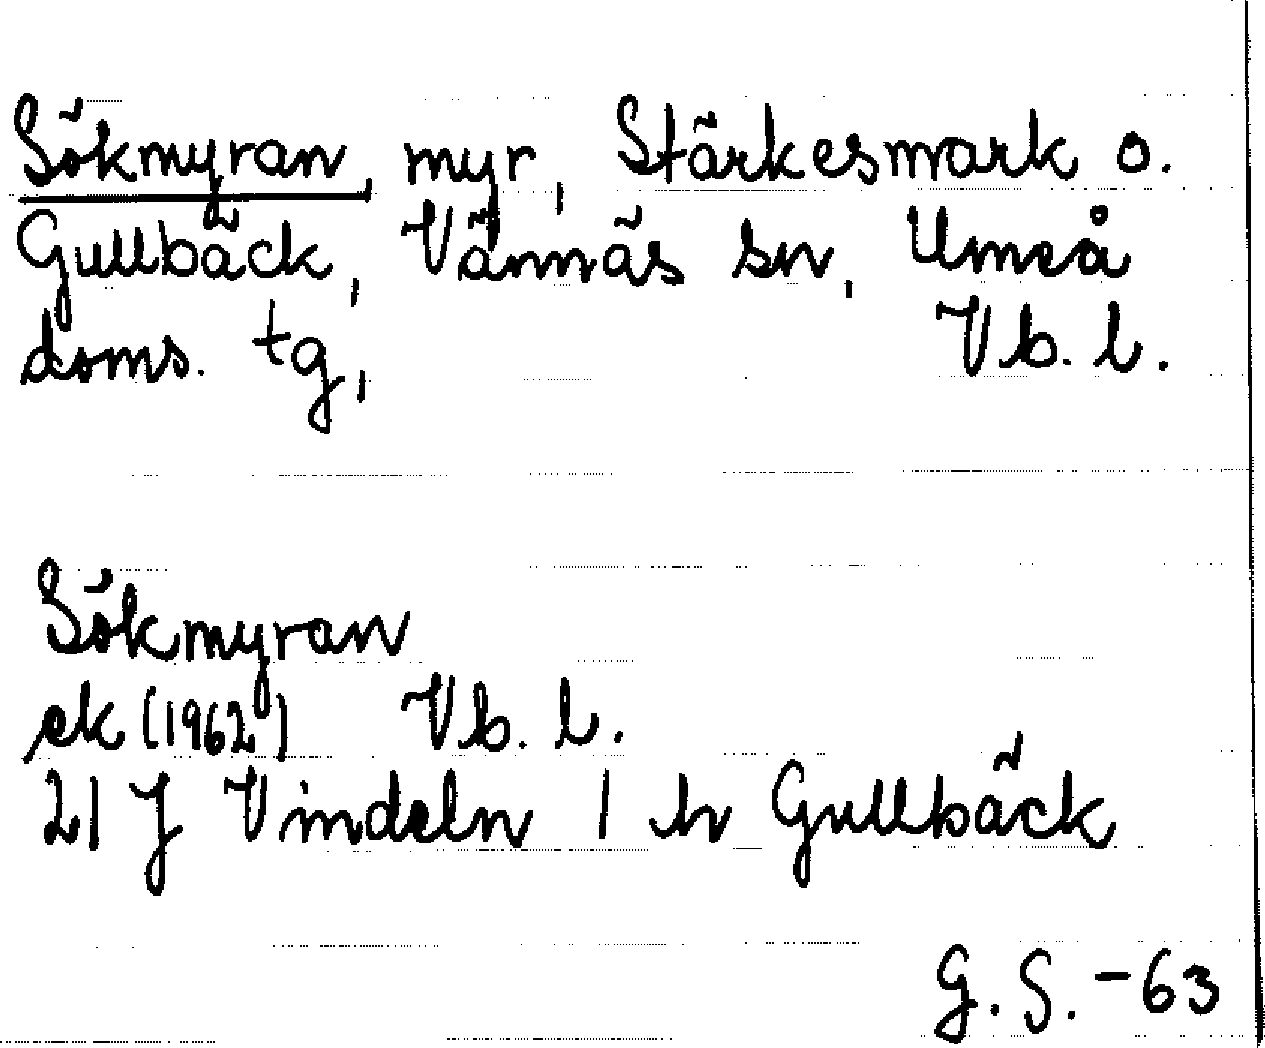 Sökmyran, myr, Stärkesmark o.
Gullbäck, Vännäs sn, Umeå
doms. tg, Vb. l.
Sökmyran
ek (1962) Vb. l.
21 J Vindeln 1 h Gullbäck
G. S. -63